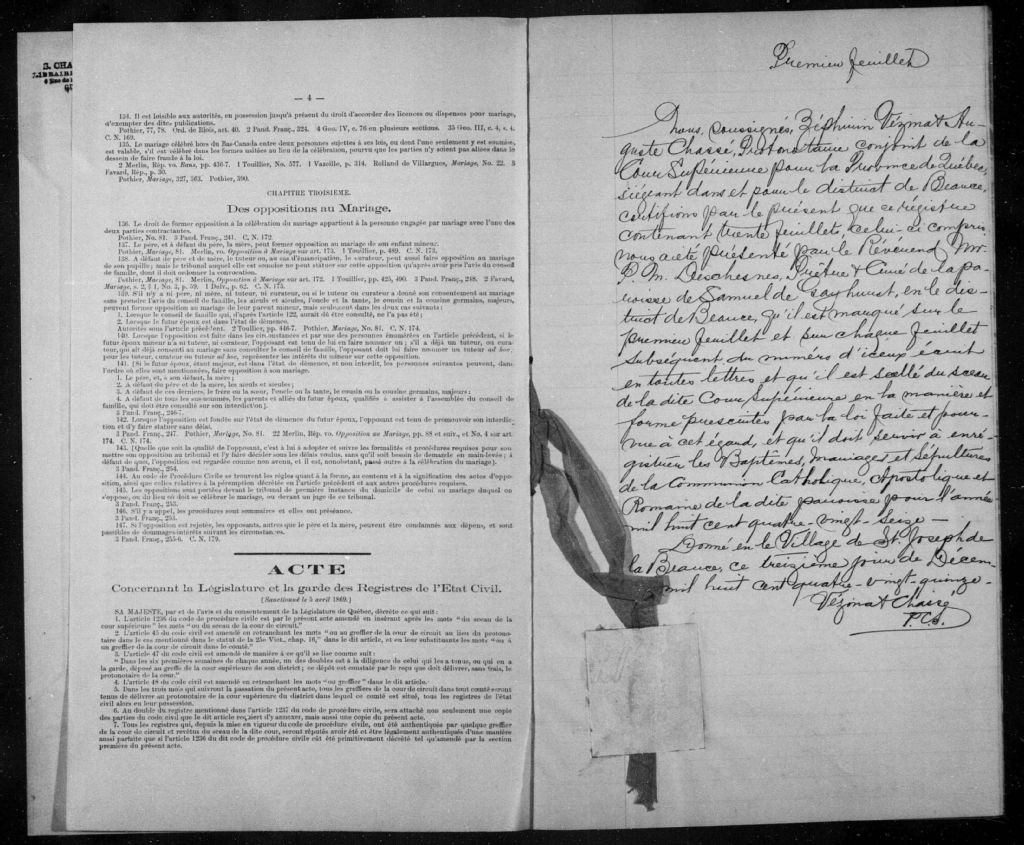 S. CHA
LIBRAIR
— 4 —
134. Il est loisible aux autorités, en possession jusqu'à présent du droit d'accorder des licences ou dispenses pour mariage,
d'exempter des dites publications.
Pothier, 77, 78. Ord. de Blois, art. 40. 2 Pand. Franç., 324. 4 Geo. IV, c. 76 en plusieurs sections. 35 Geo. III, c. 4, s. 4.
C. N. 169.
135. Le mariage célébré hors du Bas-Canada entre deux personnes sujettes à ses lois, ou dont l'une seulement y est soumise,
est valable, s'il est célébré dans les formes usitées au lieu de la célébration, pourvu que les parties n'y soient pas allées dans le
dessein de faire fraude à la loi.
2 Merlin, Rép. vo. Bans, pp. 436-7. 1 Touillier, No. 577. 1 Vazeille, p. 314. Rolland de Villargues, Mariage, No. 22. 3
Favard, Rép., p. 30.
Pothier, Mariage, 327, 363. Pothier, 390.
CHAPITRE TROISIEME.
Des oppositions au Mariage.
136. Le droit de former opposition à la célébration du mariage appartient à la personne engagée par mariage avec l'une des
deux parties contractantes.
Pothier, No. 81. 3 Pand. Franç., 241. C. N. 172.
137. Le père, et à défaut du père, la mère, peut former opposition au mariage de son enfant mineur.
Pothier, Mariage, 81. Merlin, vo. Opposition à Mariage sur art. 173. 1 Touillier, p. 489. C. N. 173.
138. A défaut de père et de mère, le tuteur ou, au cas d'émancipation, le curateur, peut aussi faire opposition au mariage
de son pupille; mais le tribunal auquel elle est soumise ne peut statuer sur cette opposition qu'après avoir pris l'avis du conseil
de famille, dont il doit ordonner la convocation.
Pothier, Mariage, 81. Merlin, Opposition à Mariage sur art. 172. 1 Touillier, pp. 425, 490. 3 Pand. Franç., 248. 2 Favard,
Mariage, s. 2, § 1, No. 3, p. 59. 1 Delv., p. 62. C. N. 175.
139. S'il n'y a ni père, ni mère, ni tuteur, ni curateur, ou si le tuteur ou curateur a donné son consentement au mariage
sans prendre l'avis du conseil de famille, les aïeuls et aïeules, l'oncle et la tante, le cousin et la cousine germains, majeurs,
peuvent former opposition au mariage de leur parent mineur, mais seulement dans les deux cas suivants:
1. Lorsque le conseil de famille qui, d'après l'article 122, aurait dû être consulté, ne l'a pas été;
2. Lorsque le futur époux est dans l'état de démence.
Autorités sous l'article précédent. 2 Touillier, pp. 446-7. Pothier, Mariage, No. 81. C. N. 174.
140. Lorsque l'opposition est faite dans les circonstances et par une des personnes énumérées en l'article précédent, si le
futur époux mineur n'a ni tuteur, ni curateur, l'opposant est tenu de lui en faire nommer un; s'il a déjà un tuteur, ou cura-
teur, qui ait déjà consenti au mariage sans consulter le conseil de famille, l'opposant doit lui faire nommer un tuteur ad hoc;
pour les tuteur, curateur ou tuteur ad hoc, représenter les intérêts du mineur sur cette opposition.
141. [Si le futur époux, étant majeur, est dans l'état de démence, et non interdit, les personnes suivantes peuvent, dans
l'ordre où elles sont mentionnées, faire opposition à son mariage.
1. Le père, et, à son défaut, la mère;
2. A défaut du père et de la mère, les aïeuls et aïeules;
3. A défaut de ces derniers, le frère ou la sœur, l'oncle ou la tante, le cousin ou la cousine germains, majeurs;
4. A défaut de tous les susnommés, les parents et alliés du futur époux, qualifiés à assister à l'assemblée du conseil de
famille, qui doit être consulté sur son interdiction.]
3 Pand. Franç., 246-7.
142. Lorsque l'opposition est fondée sur l'état de démence du futur époux, l'opposant est tenu de promouvoir son interdic-
tion et d'y faire statuer sans délai.
3 Pand. Franç., 247. Pothier, Mariage, No. 81. 22 Merlin, Rép. vo. Opposition au Mariage, pp. 88 et suiv., et No. 4 sur art.
174. C. N. 174.
143. [Quelle que soit la qualité de l'opposant, c'est à lui à adopter et suivre les formalités et procédures requises pour sou-
mettre son opposition au tribunal et l'y faire décider sous les délais voulus, sans qu'il soit besoin de demande en main-levée; à
défaut de quoi, l'opposition est regardée comme non avenu, et il est, nonobstant, passé outre à la célébration du mariage].
3 Pand. Franç., 254.
144. Au code de Procédure Civile se trouvent les règles quant à la forme, au contenu et à la signification des actes d'oppo-
sition, ainsi que celles relatives à la péremption décrétée en l'article précédent et aux autres procédures requises.
145. Les oppositions sont portées devant le tribunal de première instance du domicile de celui au mariage duquel on
s'oppose, ou du lieu où doit se célébrer le mariage, ou devant un juge de ce tribunal.
3 Pand. Franç., 253.
146. S'il y a appel, les procédures sont sommaires et elles ont préséance.
3 Pand. Franç., 253.
147. Si l'opposition est rejetée, les opposants, autres que le père et la mère, peuvent être condamnés aux dépens, et sont
passibles de dommages-intérêts suivant les circonstances.
3 Pand. Franç., 255-6. C. N. 179.
ACTE
Concernant la Législature et la garde des Registres de l'Etat Civil.
(Sanctionné le 5 avril 1869.)
SA MAJESTE, par et de l'avis et du consentement de la Législature de Québec, décrète ce qui suit:
1. L'article 1236 du code de procédure civile est par le présent acte amendé en insérant après les mots "du sceau de la
cour supérieure" les mots "ou du sceau de la cour de circuit."
2. L'article 45 du code civil est amendé en retranchant les mots "ou au greffier de la cour de circuit au lieu du protono-
taire dans le cas mentionné dans le statut de la 25e Vict., chap. 16," dans le dit article, et en leur substituants les mots "ou à
un greffier de la cour de circuit dans le comté."
3. L'article 47 du code civil est amendé de manière à ce qu'il se lise comme suit:
"Dans les six premières semaines de chaque année, un des doubles est à la diligence de celui qui les a tenus, ou qui en a
la garde, déposé au greffe de la cour supérieure de son district; ce dépôt est constaté par le reçu que doit délivrer, sans frais, le
protonotaire de la cour."
4. L'article 48 du code civil est amendé en retranchant les mots "ou greffier" dans le dit article.
5. Dans les trois mois qui suivront la passation du présent acte, tous les greffiers de la cour de circuit dans tout comté seront
tenus de délivrer au protonotaire de la cour supérieure du district dans lequel ce comté est situé, tous les registres de l'état
civil alors en leur possession.
6. Au double du registre mentionné dans l'article 1237 du code de procédure civile, sera attaché non seulement une copie
des parties du code civil que le dit article requiert d'y annexer, mais aussi une copie du présent acte.
7. Tous les registres qui, depuis la mise en vigueur du code de procédure civile, ont été authentiqués par quelque greffier
de la cour de circuit et revêtu du sceau de la dite cour, seront réputés avoir été et être légalement authentiqués d'une manière
aussi parfaite que si l'article 1236 du dit code de procédure civile eût été primitivement décrété tel qu'amendé par la section
première du présent acte.
Premier feuillet
Nous, soussignés, Zéphirin Vézina & Au-
guste Chassé, Protonotaire conjoint de la
Cour Supérieure pour la Province de Québec,
siégeant dans et pour le district de Beauce,
certifions par le présent que ce régistre
contenant trente feuillets, celui-ci compris,
nous a été présenté par le Révérend Mr.
P. M. Deschesnes, Prêtre & Curé de la pa-
roisse de Samuel de Gayhurst, en le dis-
trict de Beauce, qu'il est marqué sur le
premier feuillet et sur chaque feuillet
subséquant du numéro d'iceux écrit
en toutes lettres et qu'il est scellé du sceau
de la dite Cour Supérieure en la manière et
forme prescrites par la loi faite et pour-
vue à cet égard, et qu'il doit servir à enré-
gistrer les Baptêmes, mariages et Sépultures
de la Communion Catholique, Apostolique et
Romaine de la dite paroisse pour l'année
mil huit cent quatre-vingt-seize —
Donné en le Village de St. Joseph de
la Beauce, ce treizième jour de Décem-
mil huit cent quatre-vingt-quinze-
Vézina & Chassé
P.C.S.